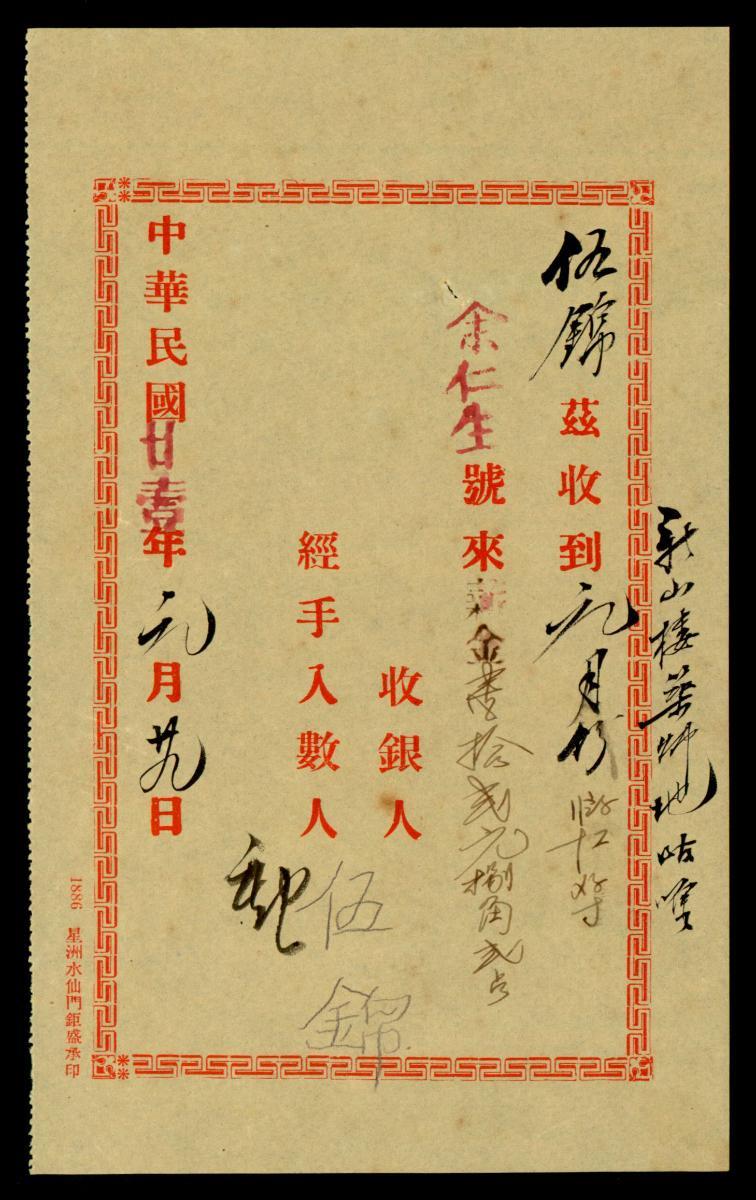 新山樓藥師地咕嘜
伍錦茲收到元月份
余仁生號來薪金壹拾弍元捌角弍占
收銀人
伍錦
經手入數人
中華民國廿壹年元月廿九日
1886 星洲水仙門鉅盛承印